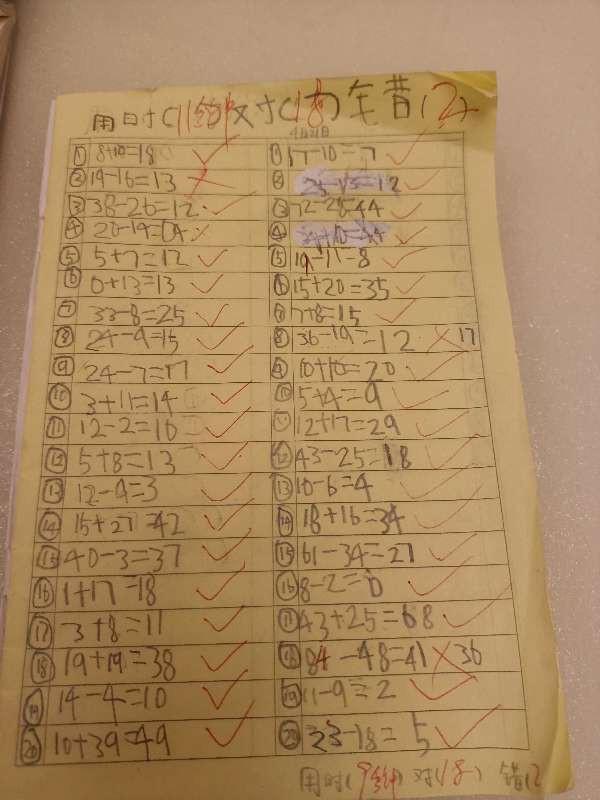 用日寸(11钟)对(18)车昔(2)
4月21日
① 8+10=18 ✓ ① 17-10=7 ✓
② 19-16=13 ✗ ② 25-13=12 ✓
③ 38-26=12 ✓ ③ 72-28=44 ✓
④ ④
⑤ 5+7=12 ✓ ⑤ 19-11=8 ✓
⑥ 0+13=13 ✓ ⑥ 15+20=35 ✓
⑦ 33-8=25 ✓ ⑦ 7+8=15 ✓
⑧ 24-9=15 ✓ ⑧ 36-19=12 ✗ 17
⑨ 24-7=17 ✓ ⑨ 10+10=20 ✓
⑩ 3+11=14 ✓ ⑩ 5+4=9 ✓
⑪ 12-2=10 ✓ ⑪ 12+17=29 ✓
⑫ 5+8=13 ✓ ⑫ 43-25=18 ✓
⑬ 12-9=3 ✓ ⑬ 10-6=4 ✓
⑭ 15+27=42 ✓ ⑭ 18+16=34 ✓
⑮ 40-3=37 ✓ ⑮ 61-34=27 ✓
⑯ 1+17=18 ✓ ⑯ 8-2=6 ✓
⑰ 3+8=11 ✓ ⑰ 43+25=68 ✓
⑱ 19+19=38 ✓ ⑱ 84-48=41 ✗ 36
⑲ 14-4=10 ✓ ⑲ 11-9=2 ✓
⑳ 10+39=49 ✓ ⑳ 23-18=5 ✓
用时(9钟) 对(18) 错(2